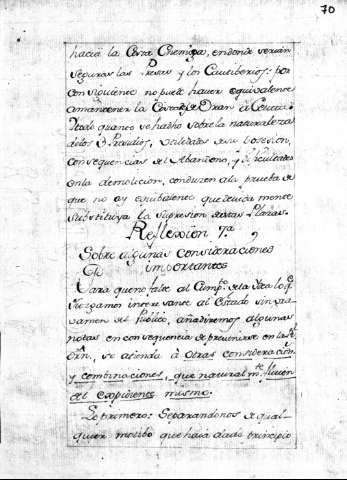 70
hacia la Costa Enemiga, en donde serian
seguras las Presas y los Cautiberios: por
consiguiente no puede haver equivalente
amantener la Corona de Oran à Ceuta:
Todo quanto se ha dho sobre la naturaleza
de los Presidios, utilidades de su Posesion,
consequencias del Abandono, y dificultades
en la demolicion, conducen ala prueba de
que no ay equibalente que devida mente
substituya la supresion destas Plazas.
Reflexion 7ª
Sobre algunas consideraciones
importantes
Para que no falte al Cumpto. de la
Juzgamos interesante al Estado sin
vamen del Publico, añadiremos algunas
notas en consequencia de prevenirse en la Rl
Orn, se atienda à otras consideracion
y combinaciones, que naturalmte. fluien
del expediente mismo.
Lo primero: Separandonos de qual
quier motibo que haia dado principio